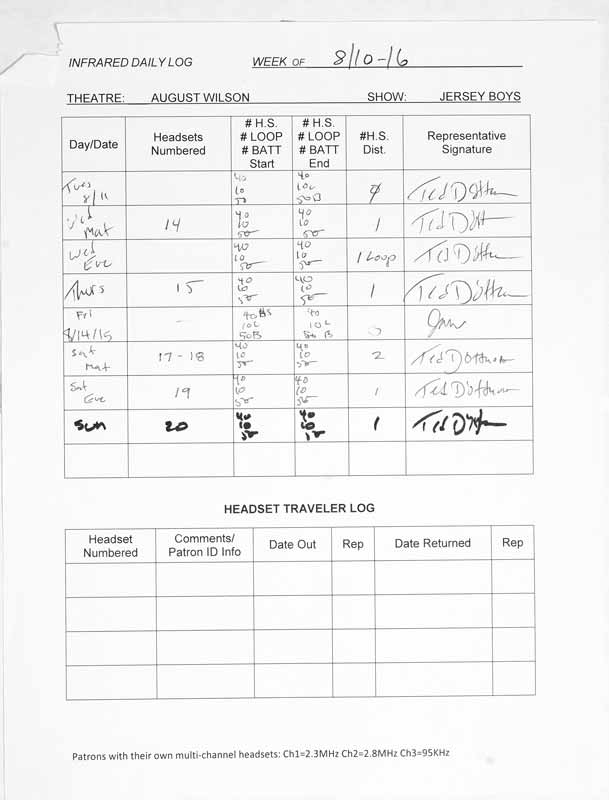 INFRARED DAILY LOG WEEK OF 8/10-16
THEATRE: AUGUST WILSON SHOW: JERSEY BOYS
Day/Date Headsets Numbered # H.S. # LOOP # BATT Start # H.S. # LOOP # BATT End #H.S. Dist. Representative Signature
Tues 8/11 40 10 50 40 10L 50B
Wed Mat 14 40 10 50 40 10 50 1
Wed Eve 40 10 50 40 10 50 1 Loop
Thurs 15 40 10 50 40 10 50 1
Fri 8/14/15 - 40 HS 10L 50B 40 10L 50 B 0
Sat Mat 17-18 40 10 50 40 10 50 2
Sat Eve 19 40 10 50 40 10 50 1
Sun 20 40 10 50 40 10 50 1
HEADSET TRAVELER LOG
Headset Numbered Comments/ Patron ID Info Date Out Rep Date Returned Rep
Patrons with their own multi-channel headsets: Ch1=2.3MHz Ch2=2.8MHz Ch3=95KHz